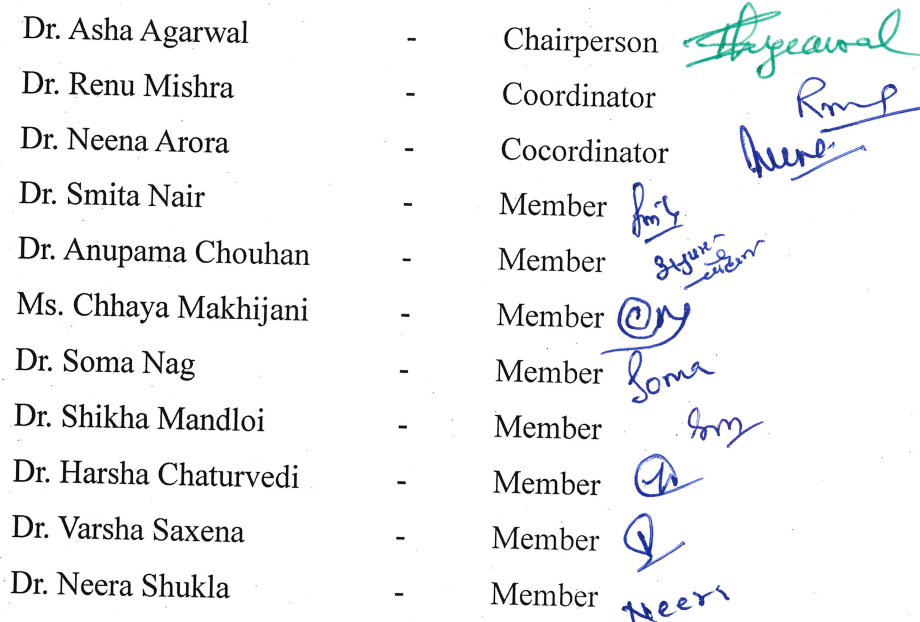 Dr. Asha Agarwal - Chairperson Agrawal
Dr. Renu Mishra - Coordinator
Dr. Neena Arora - Cocordinator
Dr. Smita Nair - Member
Dr. Anupama Chouhan - Member
Ms. Chhaya Makhijani - Member
Dr. Soma Nag - Member Soma
Dr. Shikha Mandloi - Member
Dr. Harsha Chaturvedi - Member
Dr. Varsha Saxena - Member
Dr. Neera Shukla - Member Neera